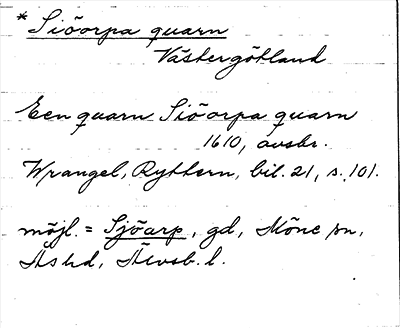 * Siöorpa quarn
Västergötland
Een quarn Siöorpa quarn
1610, avskr.
Wrangel, Ryttern, bil. 21, s. 101.
möjl. = Sjöarp, gd, Möne sn,
Ås hd, Älvsb. l.